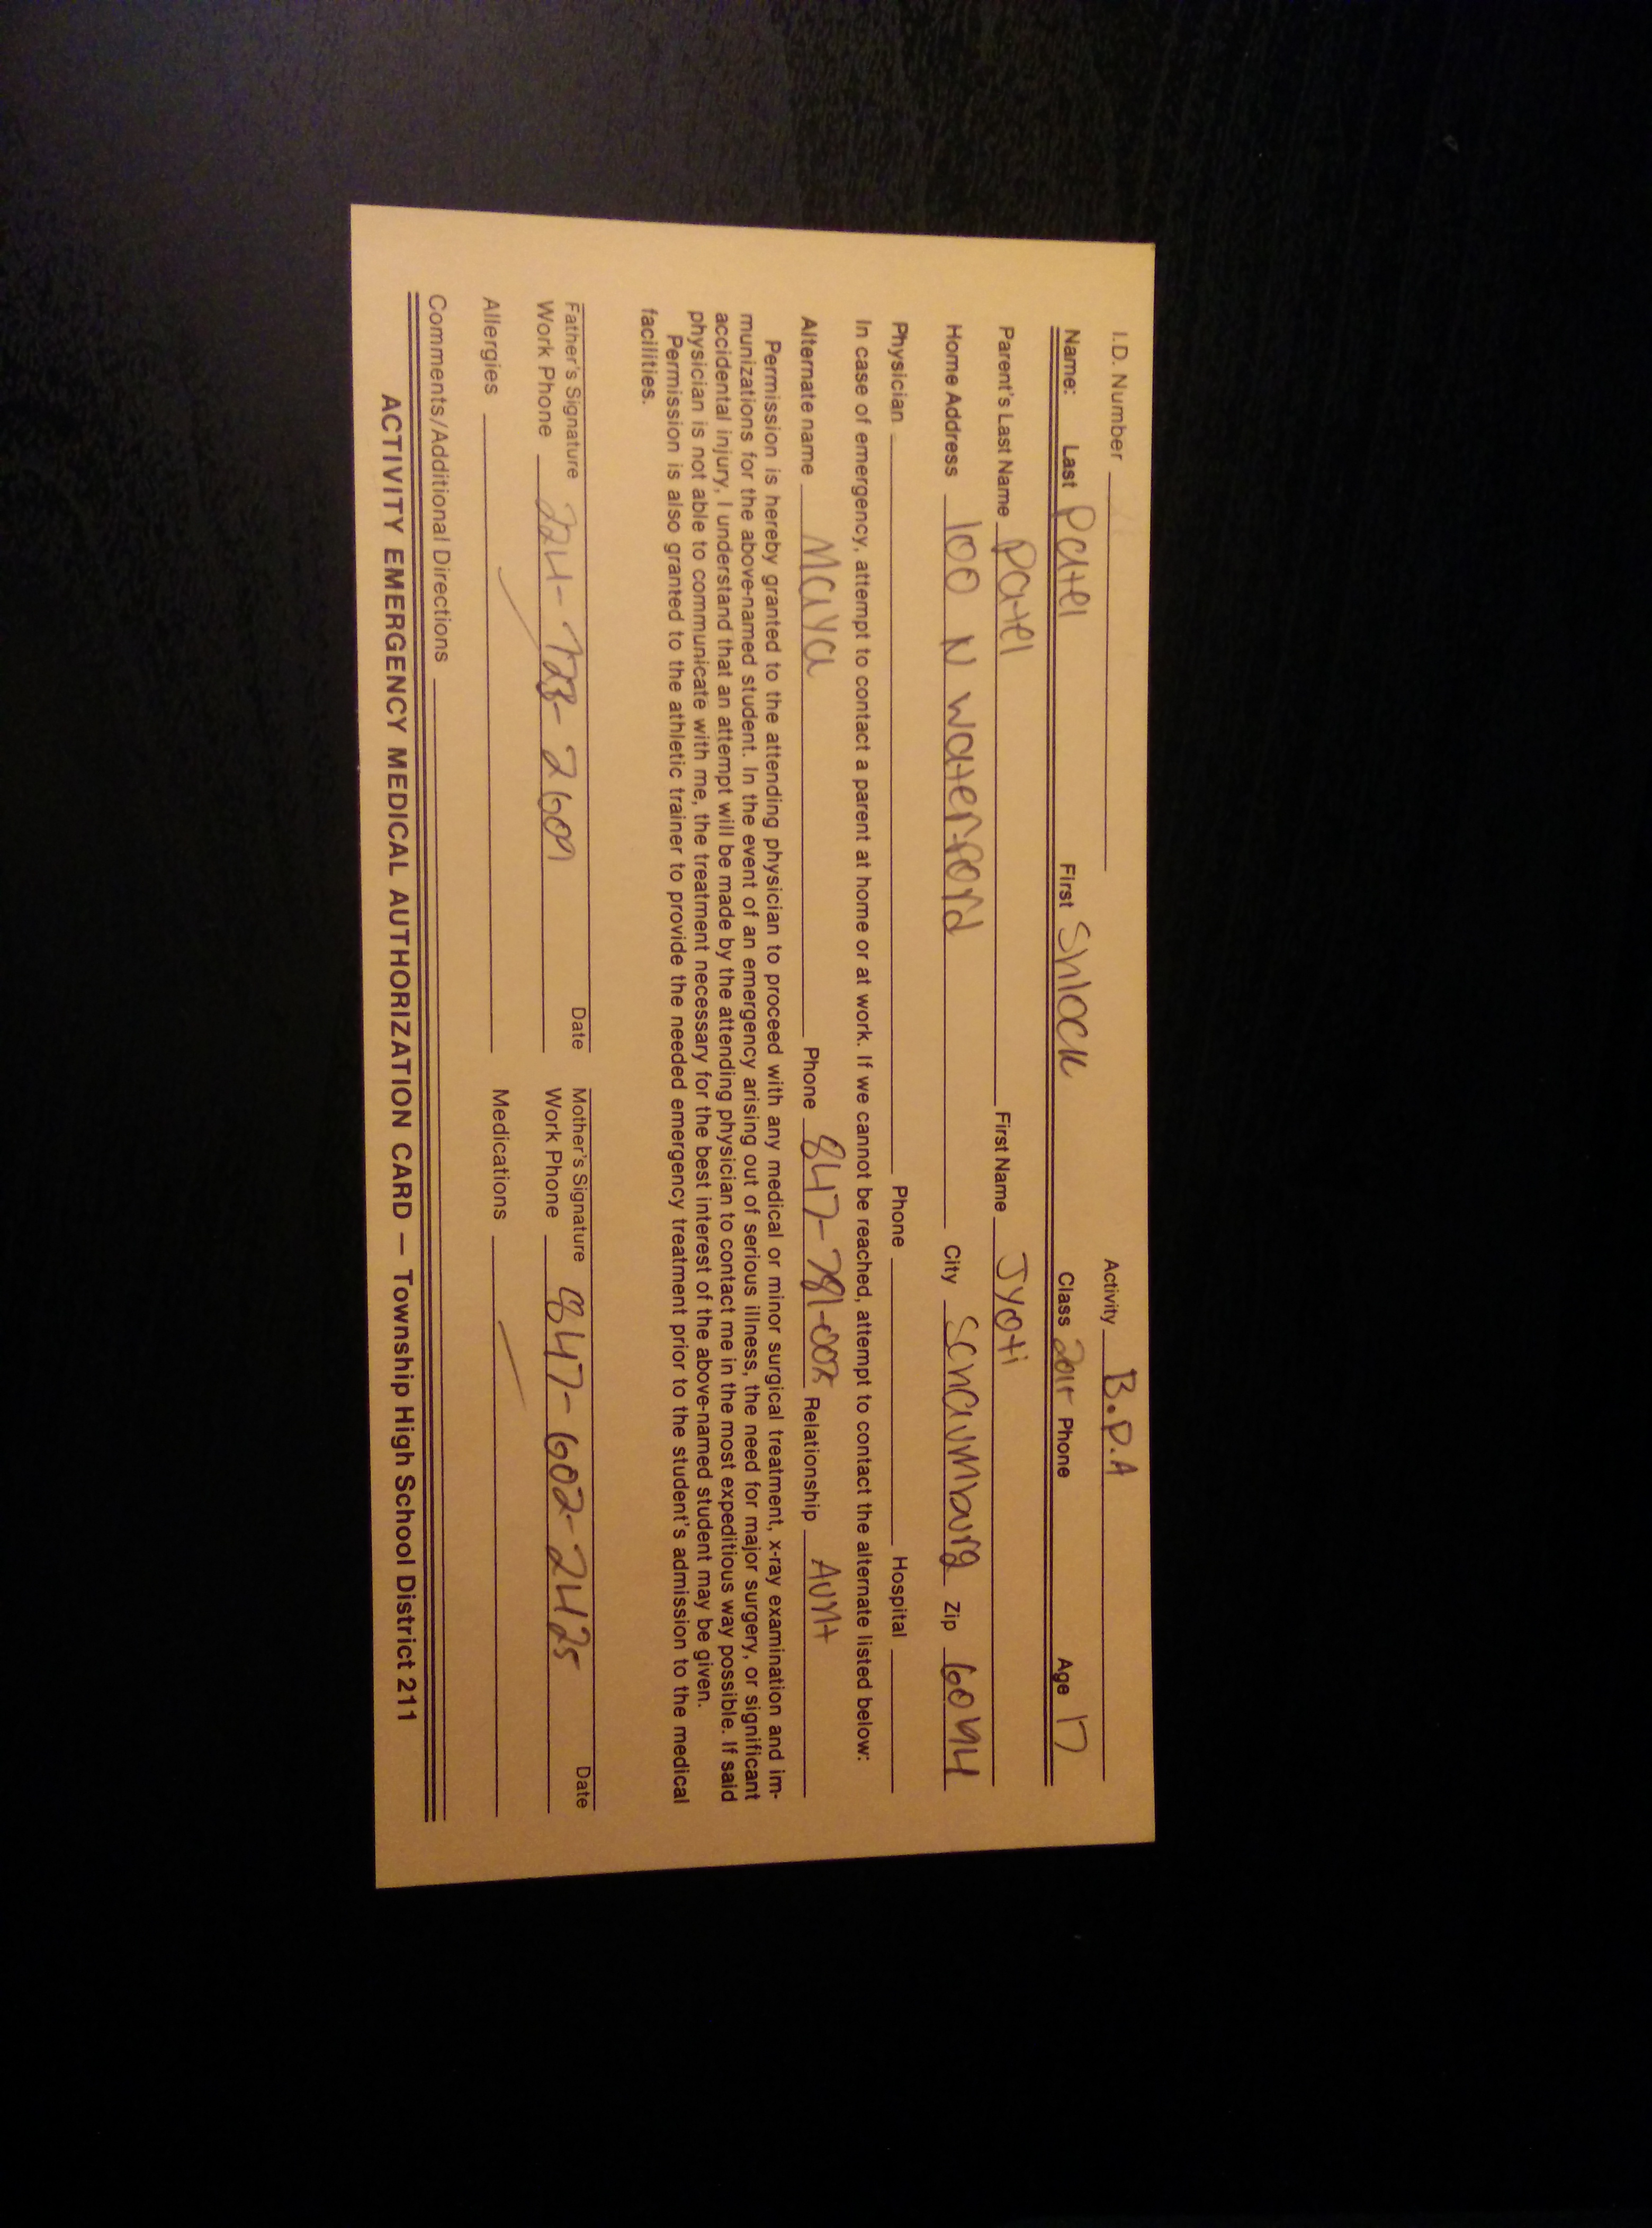 I.D. Number Activity B.P.A
Name: Last Patel First Shlock Class Phone Age 17
Parent's Last Name Patel First Name Jyoti
Home Address 100 N Waterford City Schaumburg Zip
Physician Phone Hospital
In case of emergency, attempt to contact a parent at home or at work. If we cannot be reached, attempt to contact the alternate listed below:
Alternate name Maya Phone Relationship Aunt
Permission is hereby granted to the attending physician to proceed with any medical or minor surgical treatment, x-ray examination and im-
munizations for the above-named student. In the event of an emergency arising out of serious illness, the need for major surgery, or significant
accidental injury, I understand that an attempt will be made by the attending physician to contact me in the most expeditious way possible. If said
physician is not able to communicate with me, the treatment necessary for the best interest of the above-named student may be given.
Permission is also granted to the athletic trainer to provide the needed emergency treatment prior to the student's admission to the medical
facilities.
Father's Signature Date Mother's Signature Date
Work Phone 224-728-2609 Work Phone 847-602-2425
Allergies Medications
Comments/Additional Directions
ACTIVITY EMERGENCY MEDICAL AUTHORIZATION CARD — Township High School District 211